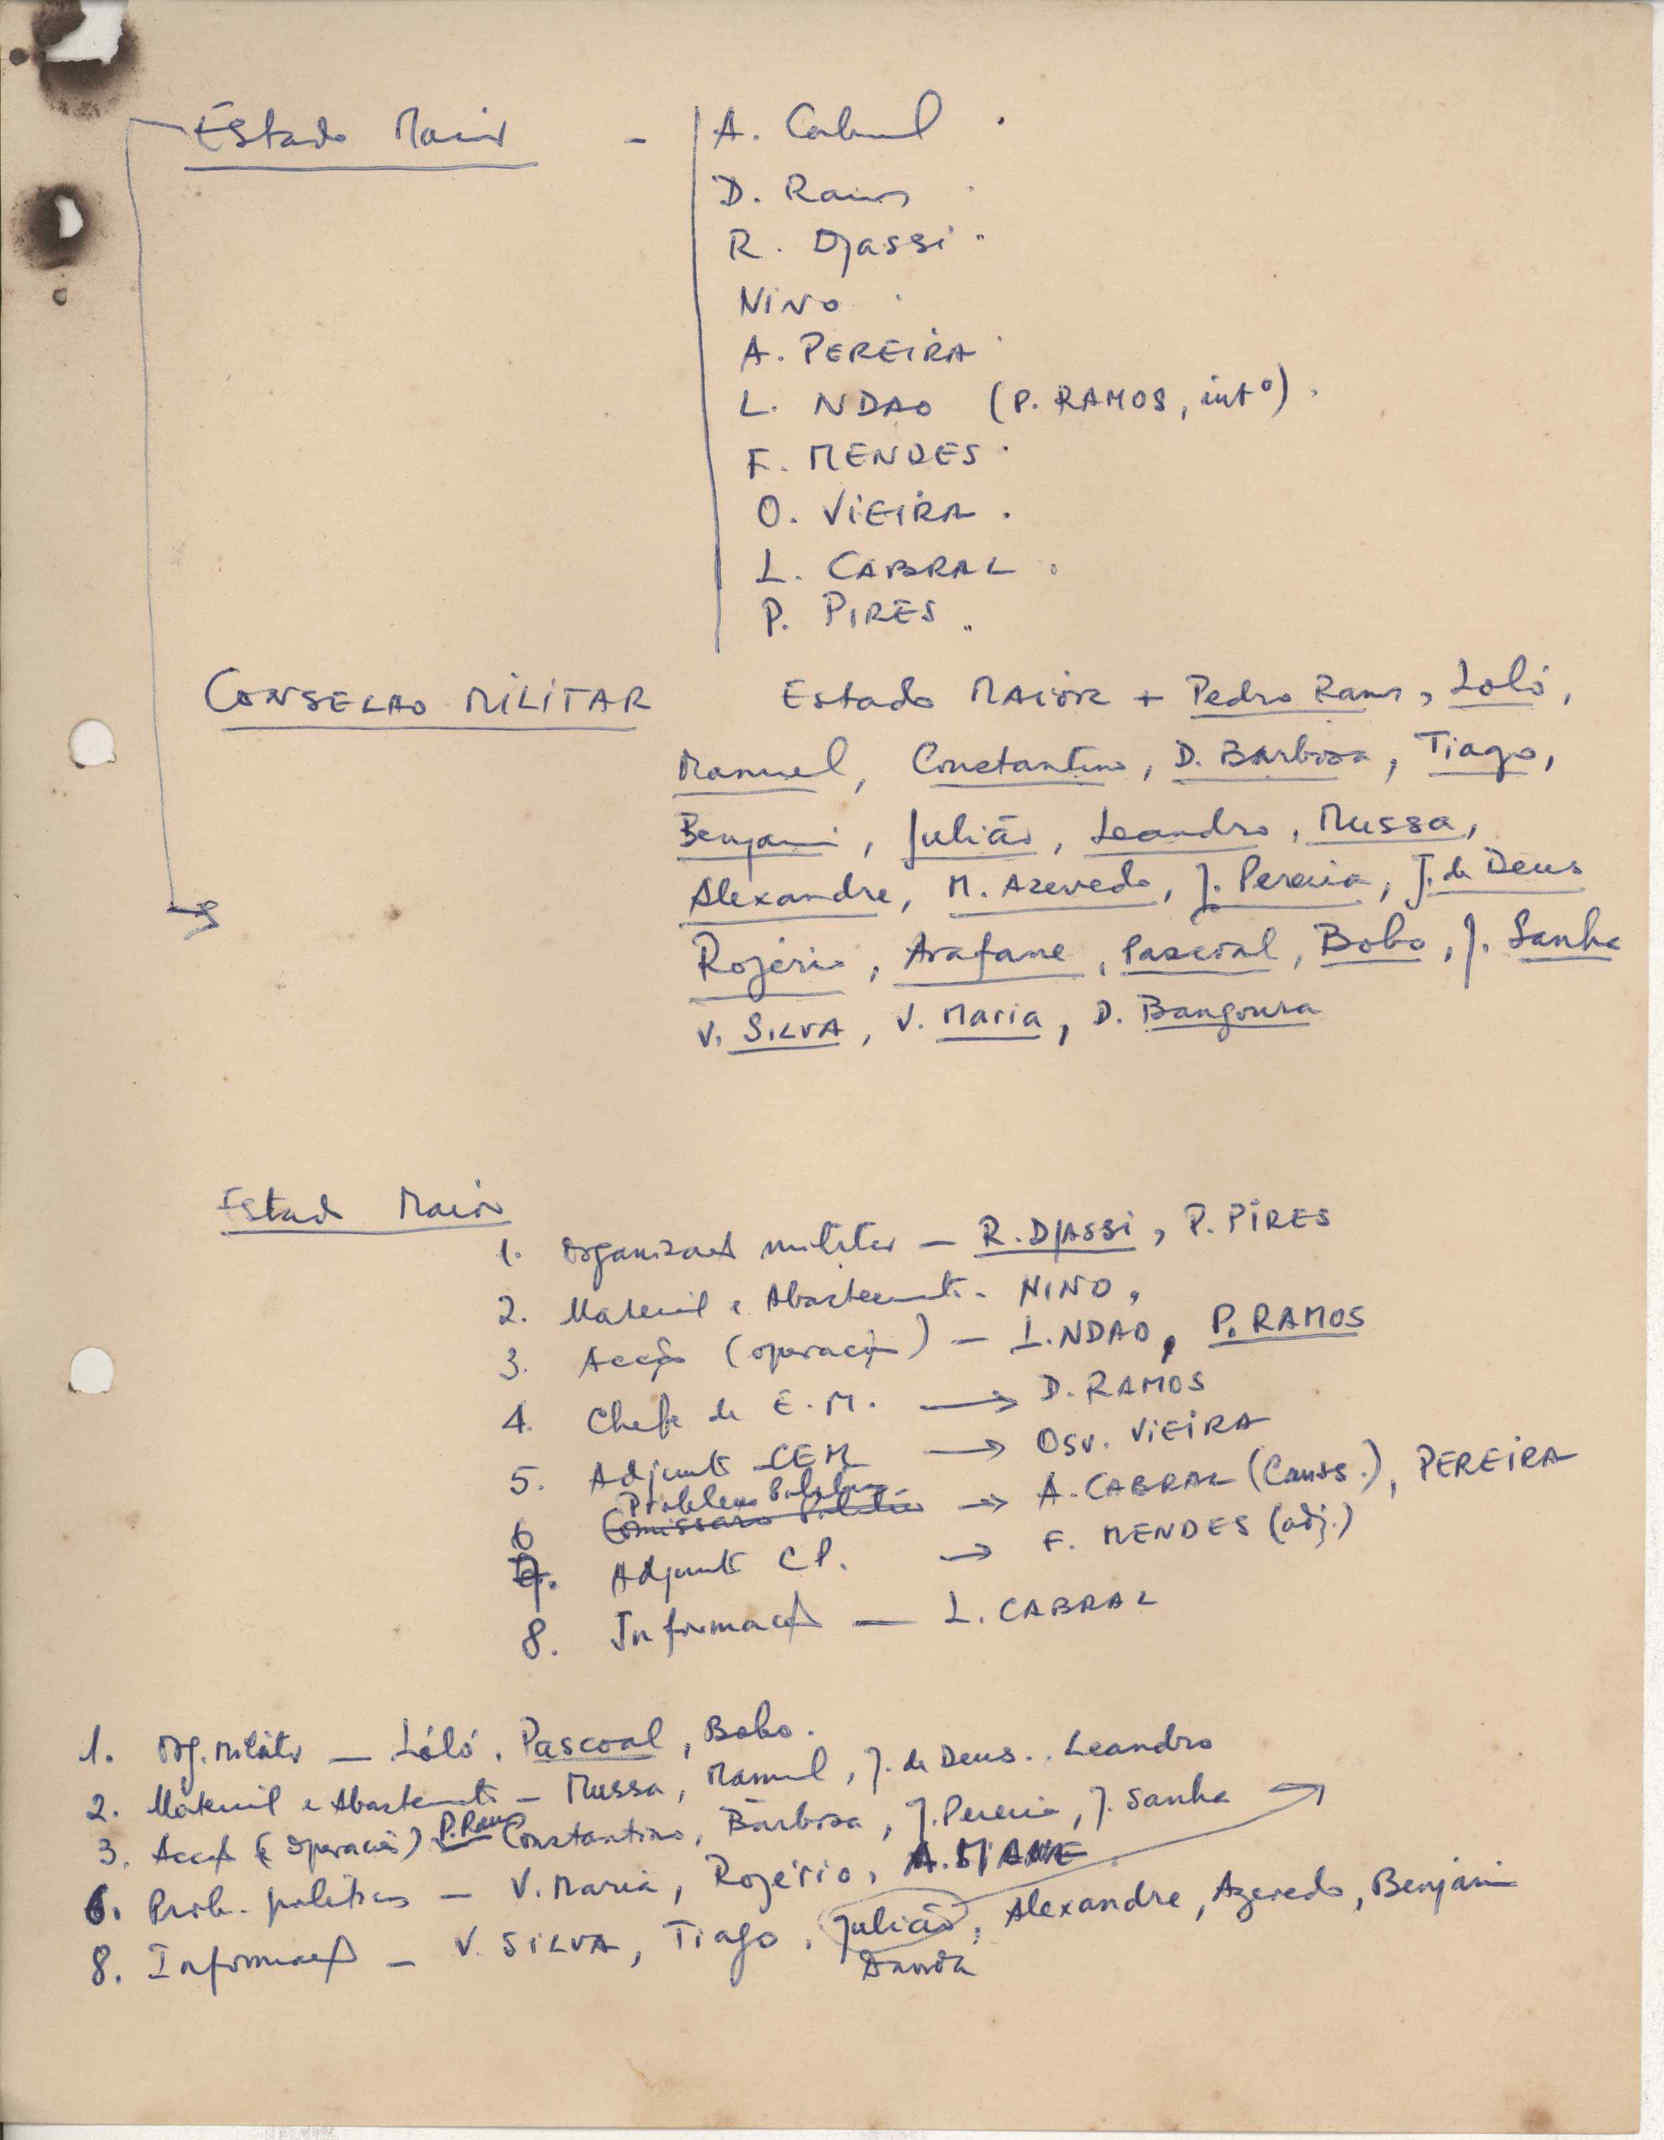 Estado Maior - A. Cabral .
D. Ramos .
R. Djassi .
NINO .
A. PEREIRA .
L. NDAO (P. RAMOS, intº) .
F. MENDES .
O. VIEIRA .
L. CABRAL .
P. PIRES .
CONSELHO MILITAR Estado MAIOR + Pedro Ramos, Loló,
Manuel, Constantino, D. Barbosa, Tiago,
Benjamin, Julião, Leandro, Mussa,
Alexandre, M. Azevedo, J. Pereira, J. de Deus
Rogério, Arafane, Pascoal, Bobo, J. Sanha
V. SILVA, V. Maria, D. Bangoura
Estado Maior
1. Organização militar - R. DJASSI, P. PIRES
2. Material e Abastecimento - NINO,
3. Acção (operação) - L. NDAO, P. RAMOS
4. Chefe de E.M. → D. RAMOS
5. Adjunto CEM → OSV. VIEIRA
Problemas Politicos
6 Comissario Politico → A. CABRAL (Comiss.), PEREIRA
7. Adjunto CP. → F. MENDES (adj.)
8. Informação - L. CABRAL
1. Org. militar - Lóló, Pascoal, Bobo.
2. Material e Abastecimento - Mussa, Manuel, J. de Deus.. Leandro
3. Acção (operação) P. Ramos Constantino, Barbosa, J. Pereira, J. Sanha
6. Prob. politicos - V. Maria, Rogério, A. MANE
8. Informação - V. SILVA, Tiago, Julião, Alexandre, Azevedo, Benjamin